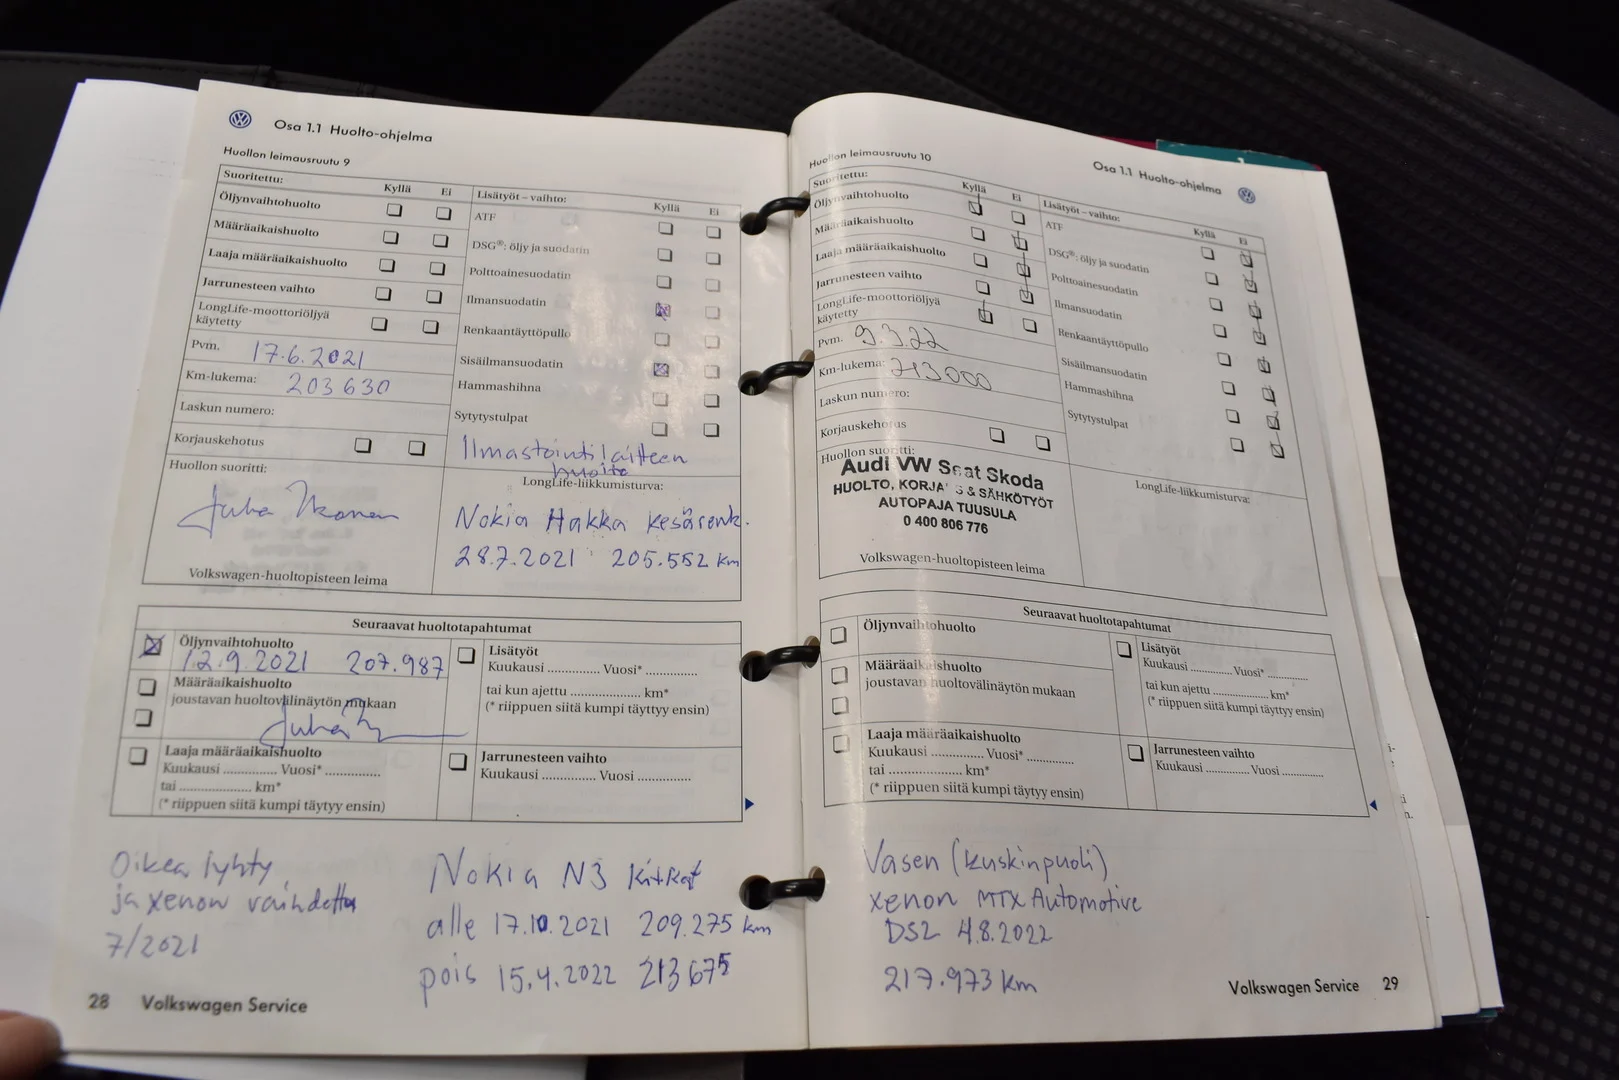 Osa 1.1 Huolto-ohjelma
Huollon leimausruutu 9
Suoritettu: Kyllä Ei
Öljynvaihtohuolto
Määräaikaishuolto
Laaja määräaikaishuolto
Jarrunesteen vaihto
LongLife-moottoriöljyä
käytetty
Pvm. 17.6.2021
Km-lukema: 203630
Laskun numero:
Korjauskehotus
Huollon suoritti:
Volkswagen-huoltopisteen leima
Lisätyöt – vaihto: Kyllä Ei
ATF
DSG®: öljy ja suodatin
Polttoainesuodatin
Ilmansuodatin
Renkaantäyttöpullo
Sisäilmansuodatin
Hammashihna
Sytytystulpat
Ilmastointilaitteen
huolto
LongLife-liikkumisturva:
Nokia Hakka kesärenk.
28.7.2021 205.552 km
Seuraavat huoltotapahtumat
Öljynvaihtohuolto
12.9.2021 207.987
Määräaikaishuolto
joustavan huoltovälinäytön mukaan
Laaja määräaikaishuolto
Kuukausi ............. Vuosi* .............
tai ..................... km*
(* riippuen siitä kumpi täytyy ensin)
Lisätyöt
Kuukausi ............. Vuosi* .............
tai kun ajettu .................. km*
(* riippuen siitä kumpi täyttyy ensin)
Jarrunesteen vaihto
Kuukausi ............. Vuosi .............
Oikea lyhty
ja xenon vaihdettu
7/2021
Nokia N3 kitkat
alle 17.10.2021 209.275 km
pois 15.4.2022 213675
28 Volkswagen Service
Huollon leimausruutu 10
Osa 1.1 Huolto-ohjelma
Suoritettu: Kyllä Ei
Öljynvaihtohuolto
Määräaikaishuolto
Laaja määräaikaishuolto
Jarrunesteen vaihto
LongLife-moottoriöljyä
käytetty
Pvm. 9.3.22
Km-lukema: 213000
Laskun numero:
Korjauskehotus
Huollon suoritti:
Audi VW Seat Skoda
HUOLTO, & SÄHKÖTYÖT
AUTOPAJA TUUSULA
0 400 806 776
Volkswagen-huoltopisteen leima
Lisätyöt – vaihto: Kyllä Ei
ATF
DSG®: öljy ja suodatin
Polttoainesuodatin
Ilmansuodatin
Renkaantäyttöpullo
Sisäilmansuodatin
Hammashihna
Sytytystulpat
LongLife-liikkumisturva:
Seuraavat huoltotapahtumat
Öljynvaihtohuolto
Määräaikaishuolto
joustavan huoltovälinäytön mukaan
Laaja määräaikaishuolto
Kuukausi ............. Vuosi* .............
tai ..................... km*
(* riippuen siitä kumpi täyttyy ensin)
Lisätyöt
Kuukausi ............. Vuosi* .............
tai kun ajettu .................. km*
(* riippuen siitä kumpi täyttyy ensin)
Jarrunesteen vaihto
Kuukausi ............. Vuosi .............
Vasen (kuskinpuoli)
xenon MTX Automotive
DS2 4.8.2022
217.973 km
Volkswagen Service 29